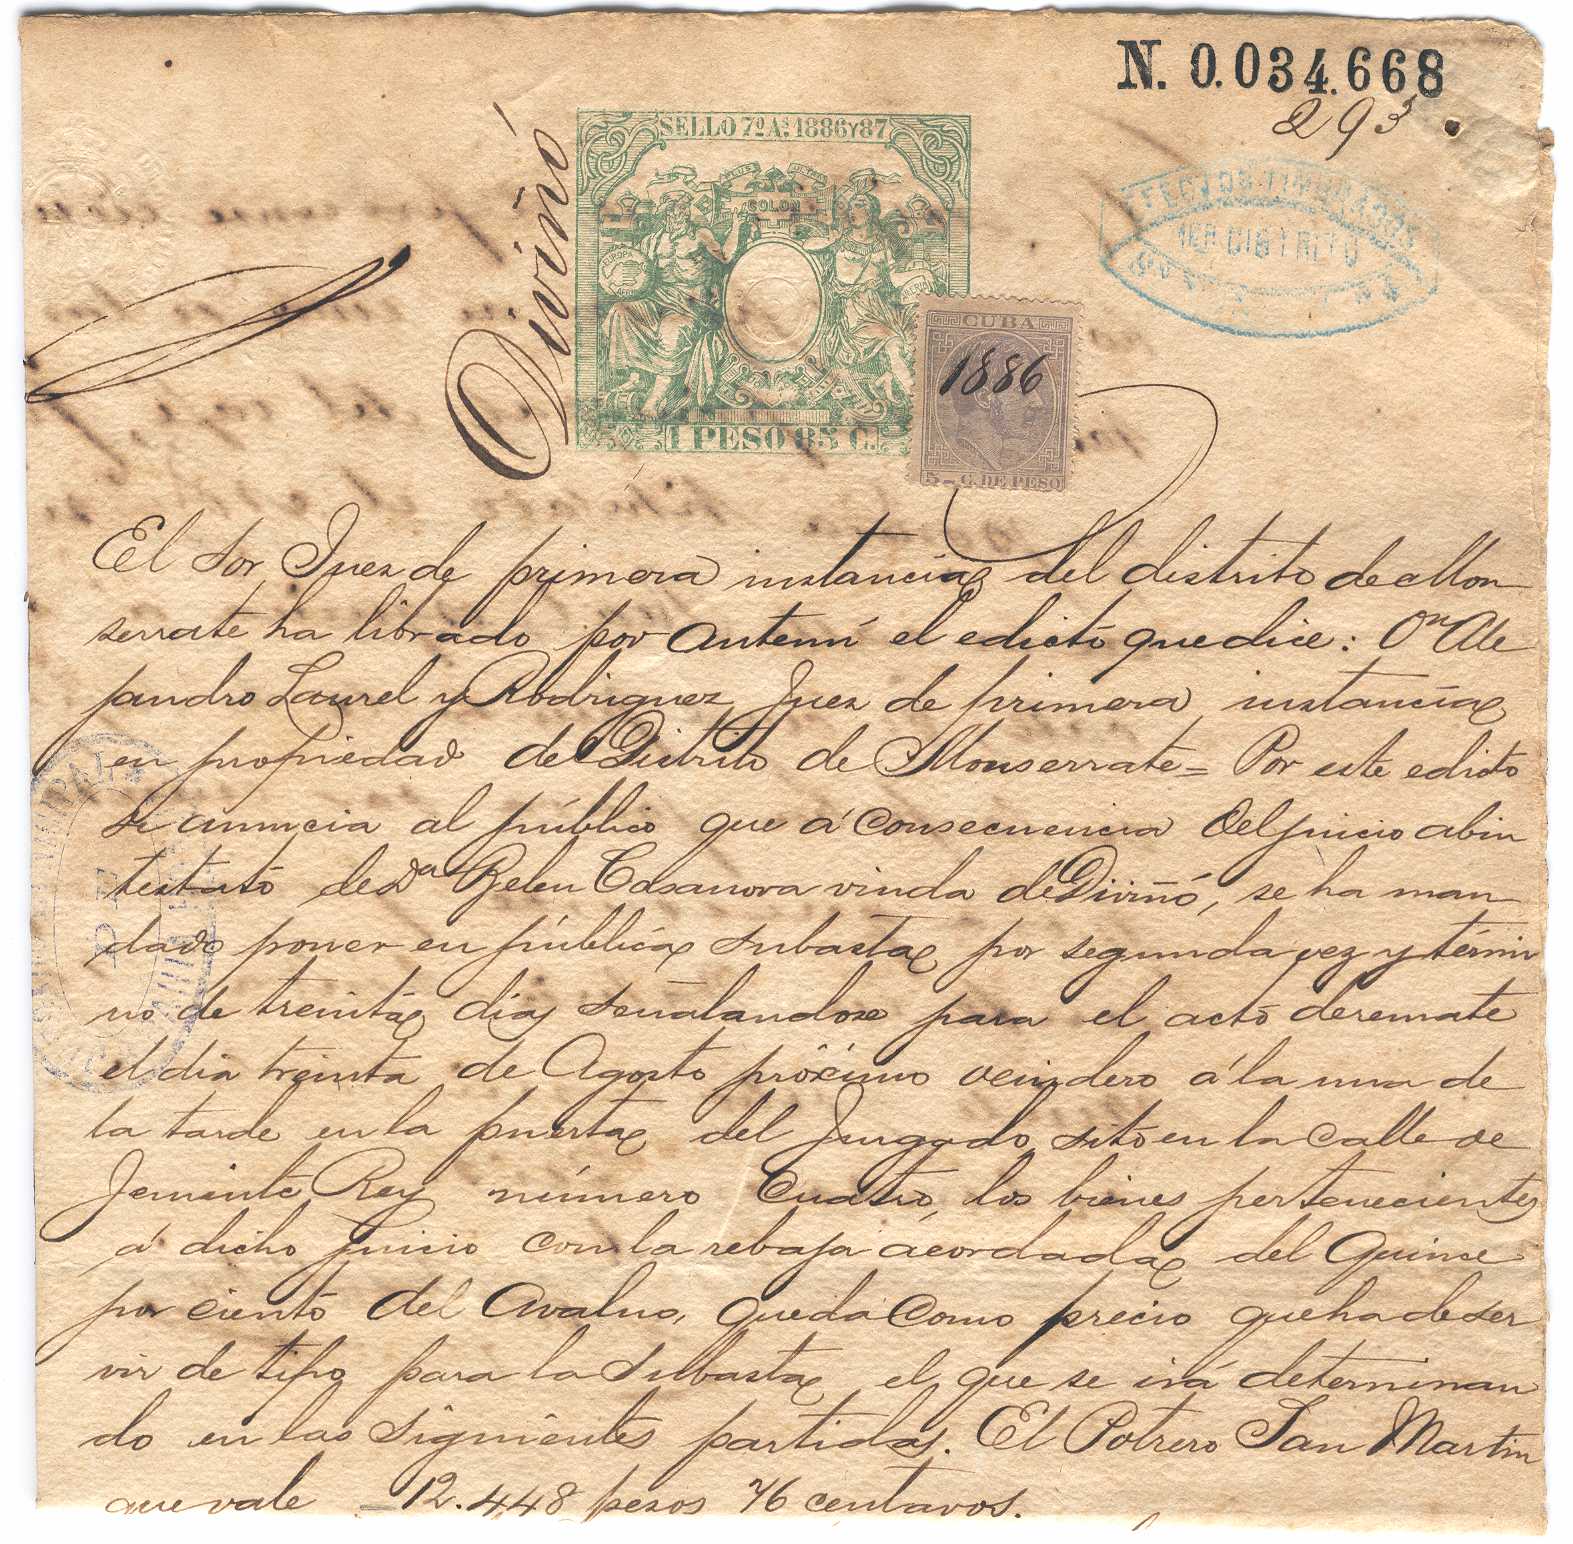 N. 0.034.668
293
SELLO 7º Aº. 1886 Y 87
PLUS ULTRA
COLON
EUROPA
1 PESO 85 C.
Diviñó
CUBA
1886
5 C. DE PESO
EFECTOS TIMBRADOS
1ER DISTRITO
El Sor Juez de primera instancia del distrito de Mon
serrate ha librado por antemí el edicto que dice: Dn Ale
jandro Laurel y Rodriguez Juez de primera instancia
en propiedad del Distrito de Monserrate = Por este edicto
se anuncia al público que á consecuencia del juicio abin
testato de Da Belen Casanova viuda de Diviñó, se ha man
dado poner en pública subasta por segunda vez y térmi
no de treinta dias señalandose para el acto de remate
el dia treinta de Agosto próximo venidero á la una de
la tarde en la puerta del Juzgado sito en la calle de
Teniente Rey número cuatro, los bienes pertenecientes
á dicho juicio con la rebaja acordada del Quince
por ciento del avaluo, queda como precio que ha de ser
vir de tipo para la subasta el que se irá determinan
do en las siguientes partidas. El Potrero San Martin
que vale = 12.448 pesos 76 centavos.